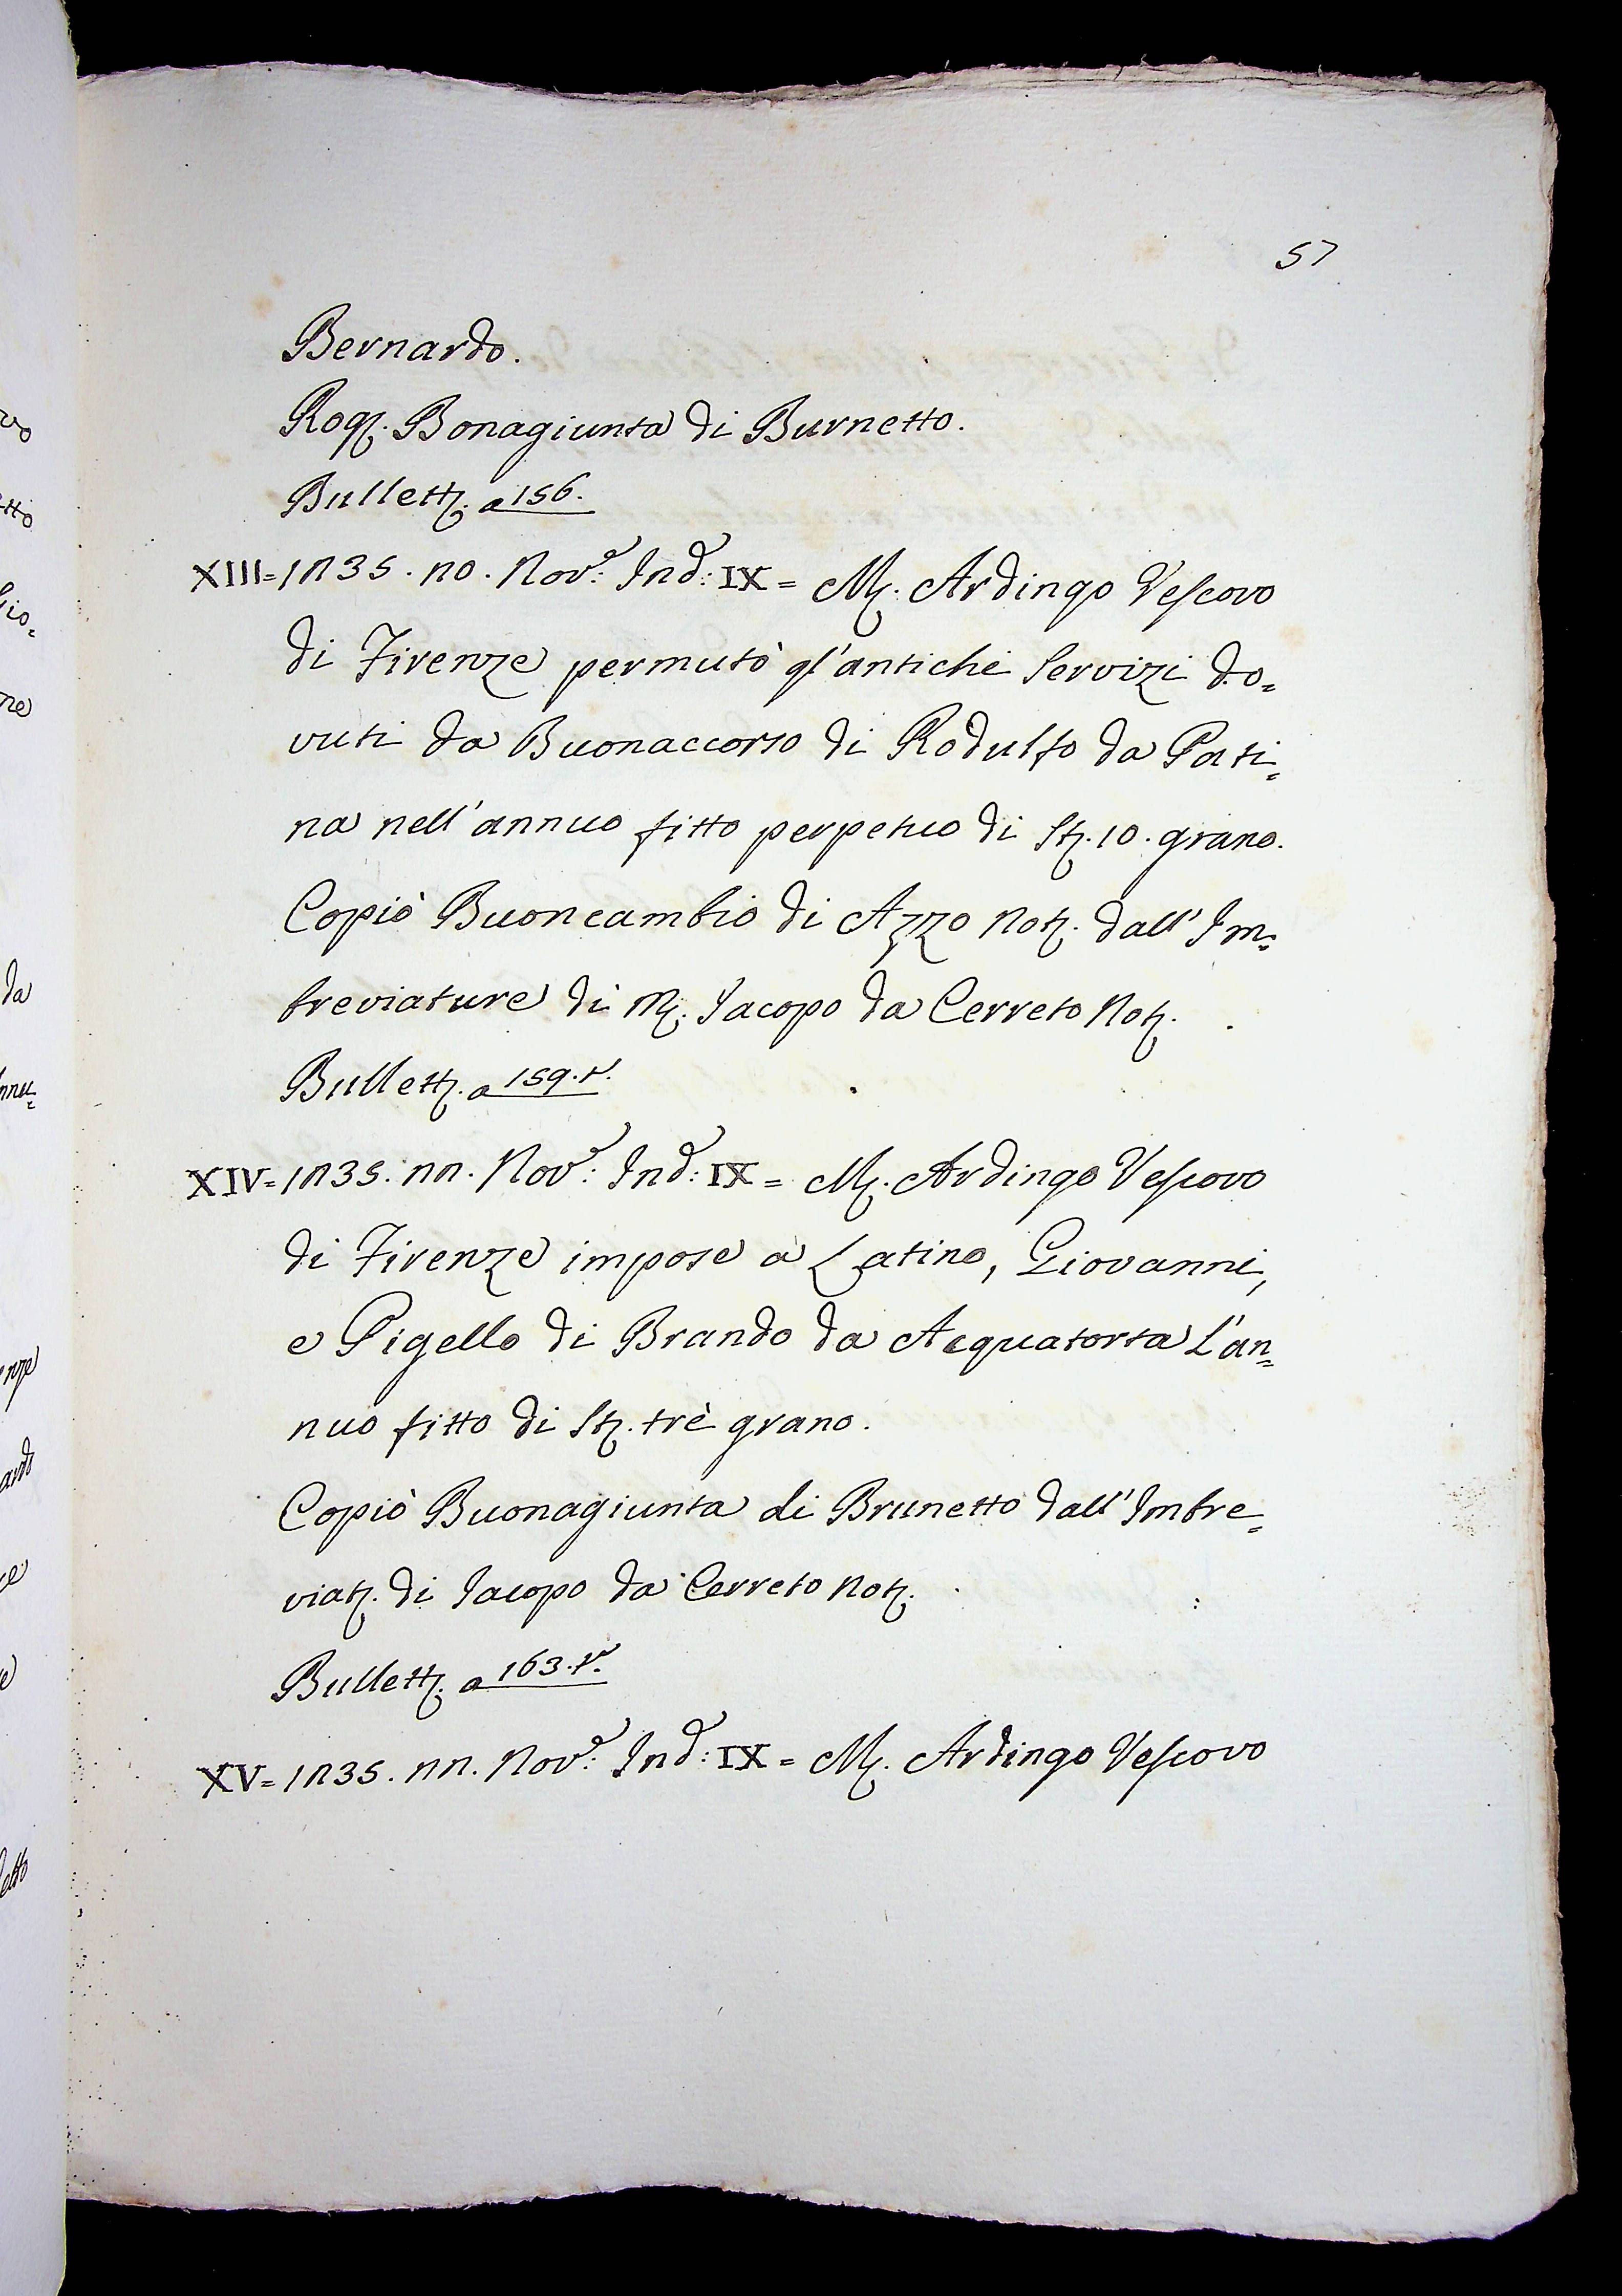 57
Bernardo.
Rog. Bonagiunta di Burnetto.
Bullett. a 156.
XIII = 1235. 20. Nov.e: Ind: IX = M. Ardingo Vescovo
di Firenze permutò gl'antichi Servizi do=
vuti da Buonaccorso di Rodulfo da Pati=
na nell'annuo fitto perpetuo di St. 10. grano.
Copiò Buoncambio di Azzo Not. dall'Im=
breviature di M. Jacopo da Cerreto Not.
Bullett. a 159.t.
XIV = 1235. 22. Nov.e: Ind: IX = M. Ardingo Vescovo
di Firenze impose a Latino, Giovanni,
e Pigello di Brando da Acquatorta l'an=
nuo fitto di St. trè grano.
Copiò Buonagiunta di Brunetto dall'Imbre=
viat. di Jacopo da Cerreto Not.
Bullett. a 163.t.
XV = 1235. 22. Nov.e: Ind: IX = M. Ardingo Vescovo